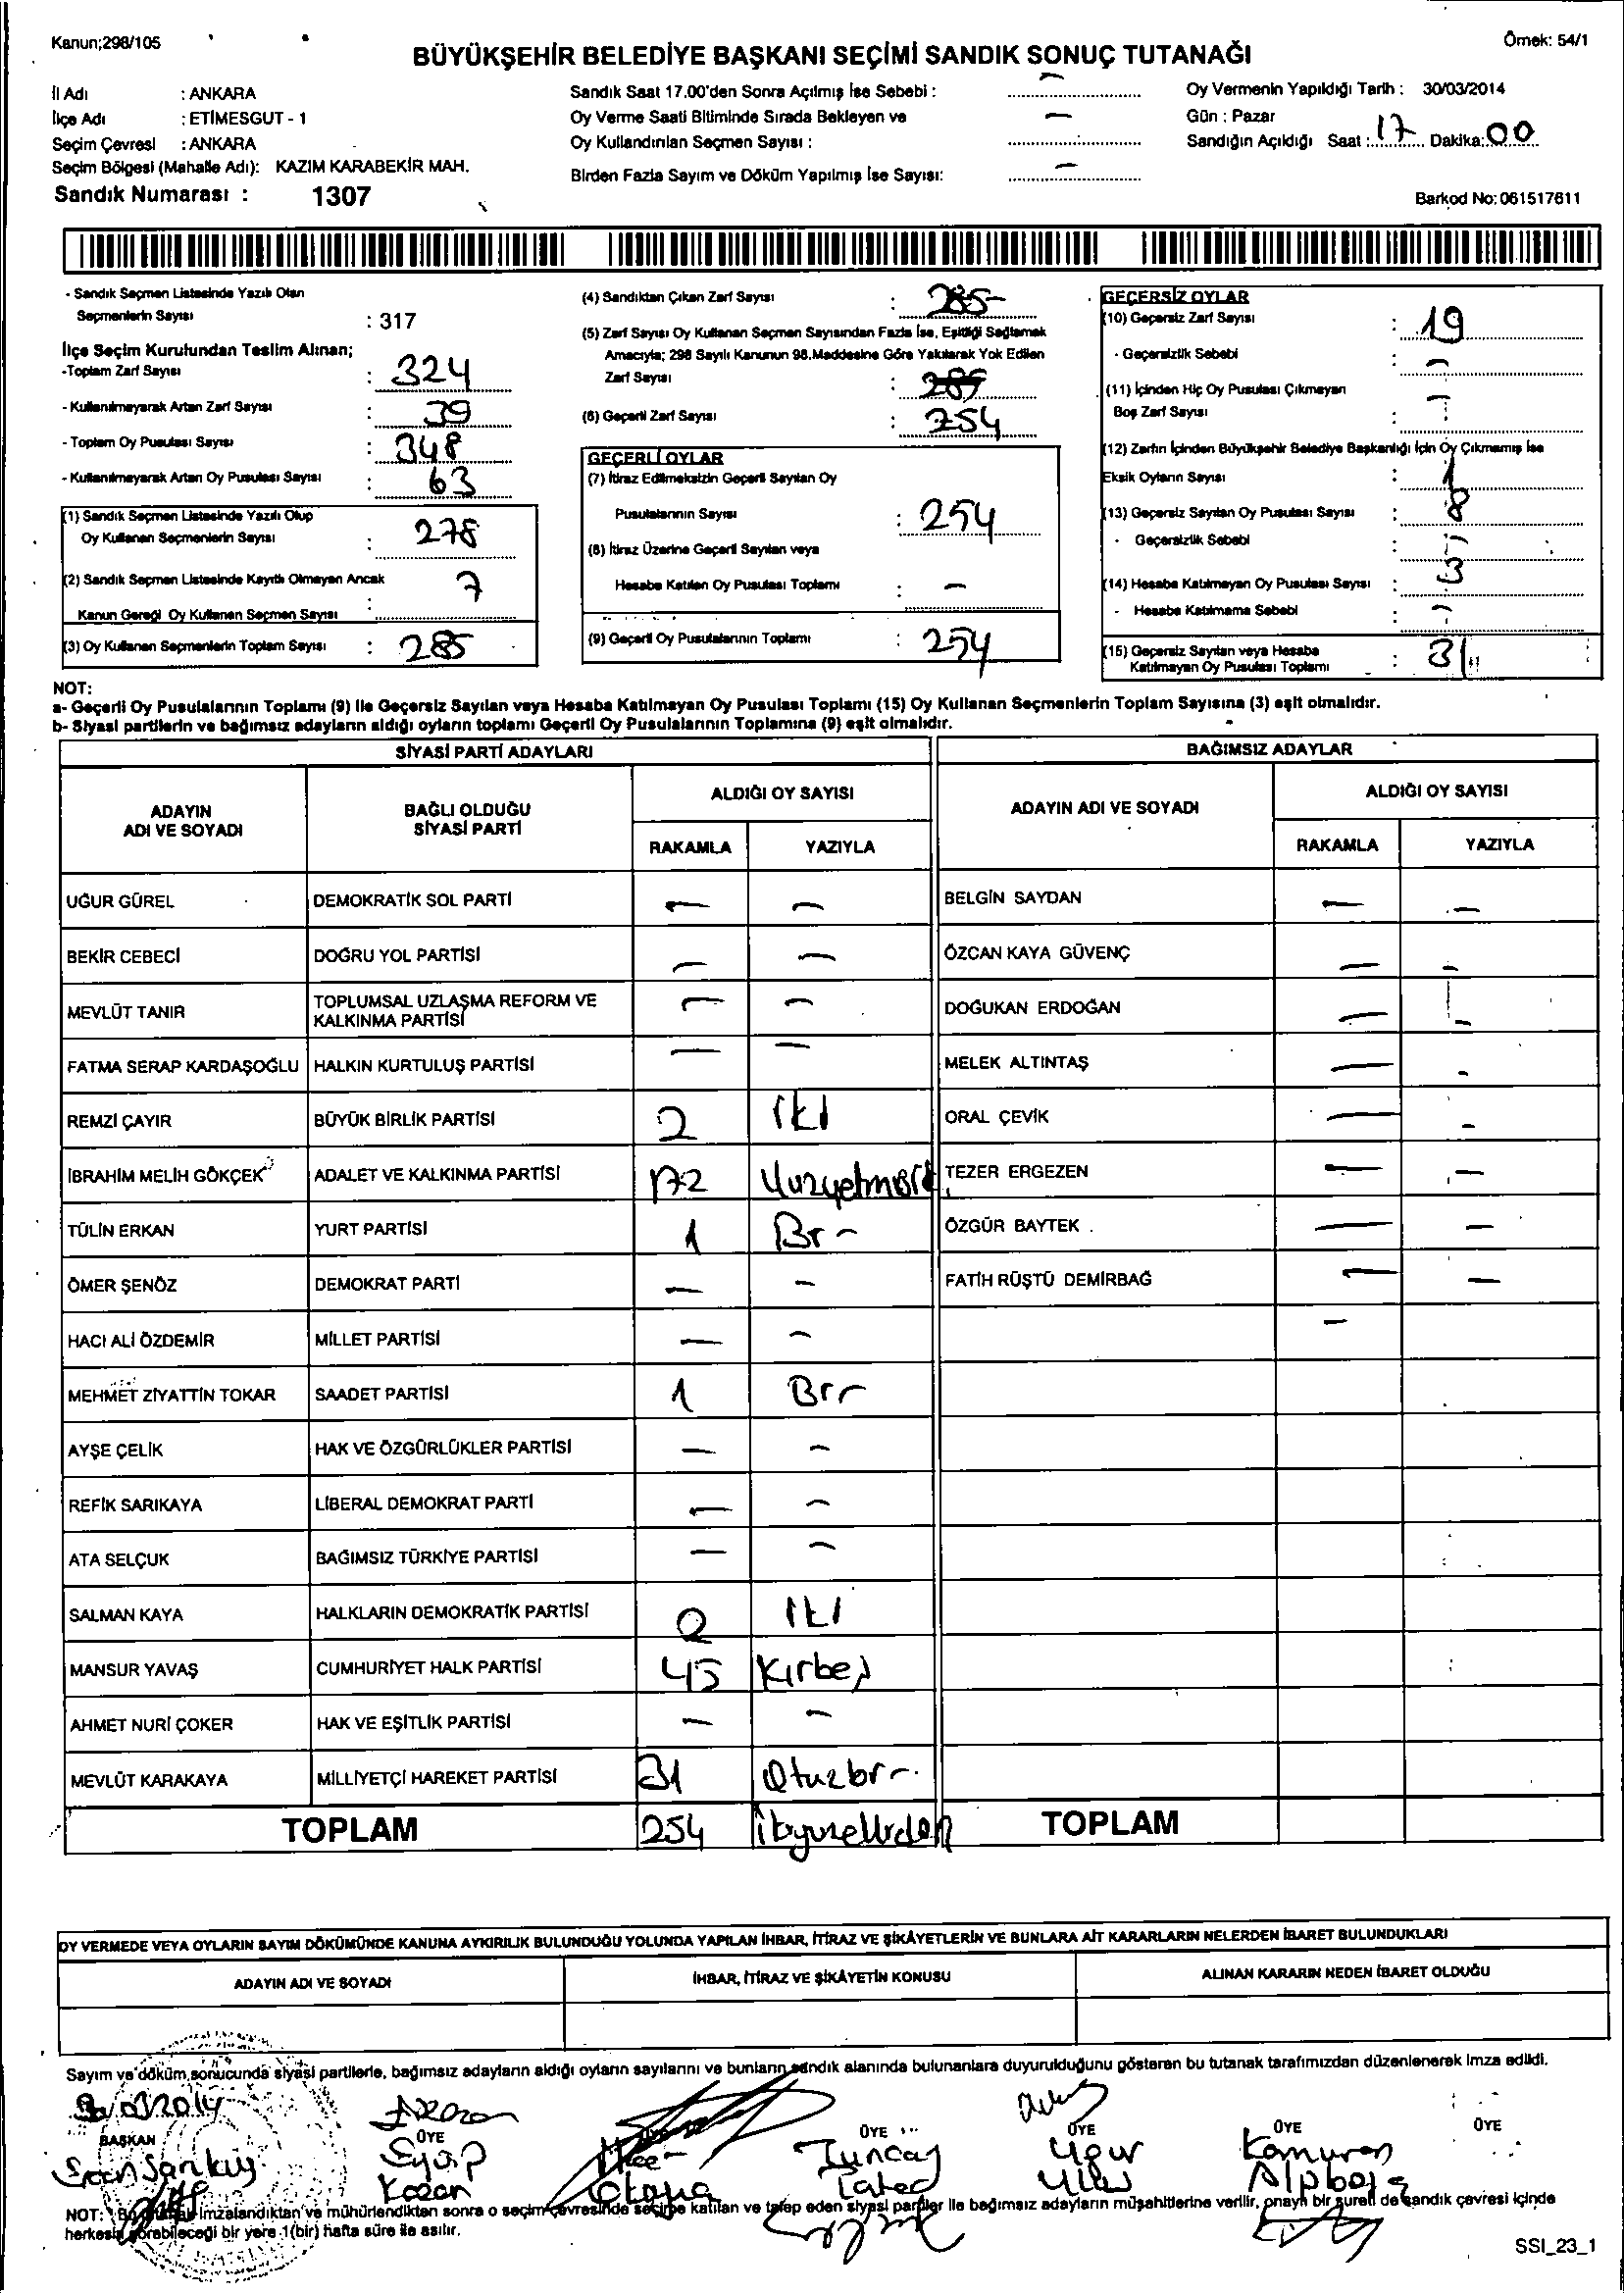 Kanun;298/105
Örnek: 54/1
BÜYÜKŞEHİR BELEDİYE BAŞKANI SEÇİMİ SANDIK SONUÇ TUTANAĞI
İl Adı : ANKARA
İlçe Adı : ETİMESGUT - 1
Seçim Çevresi : ANKARA
Seçim Bölgesi (Mahalle Adı): KAZIM KARABEKİR MAH.
Sandık Numarası : 1307
Sandık Saat 17.00'den Sonra Açılmış İse Sebebi : –
Oy Verme Saati Bitiminde Sırada Bekleyen ve
Oy Kullandırılan Seçmen Sayısı : –
Birden Fazla Sayım ve Döküm Yapılmış İse Sayısı: –
Oy Vermenin Yapıldığı Tarih : 30/03/2014
Gün : Pazar
Sandığın Açıldığı Saat : 17 Dakika: 00
Barkod No: 061517611
- Sandık Seçmen Listesinde Yazılı Olan
Seçmenlerin Sayısı : 317
İlçe Seçim Kurulundan Teslim Alınan;
-Toplam Zarf Sayısı : 324
- Kullanılmayarak Artan Zarf Sayısı : 39
- Toplam Oy Pusulası Sayısı : 348
- Kullanılmayarak Artan Oy Pusulası Sayısı : 63
(1) Sandık Seçmen Listesinde Yazılı Olup
Oy Kullanan Seçmenlerin Sayısı : 278
(2) Sandık Seçmen Listesinde Kayıtlı Olmayan Ancak
Kanun Gereği Oy Kullanan Seçmen Sayısı : 7
(3) Oy Kullanan Seçmenlerin Toplam Sayısı : 285
(4) Sandıktan Çıkan Zarf Sayısı : 285-
(5) Zarf Sayısı Oy Kullanan Seçmen Sayısından Fazla İse, Eşitliği Sağlamak
Amacıyla; 298 Sayılı Kanunun 98.Maddesine Göre Yakılarak Yok Edilen
Zarf Sayısı : 285
(6) Geçerli Zarf Sayısı : 254
GEÇERLİ OYLAR
(7) İtiraz Edilmeksizin Geçerli Sayılan Oy
Pusulalarının Sayısı : 254
(8) İtiraz Üzerine Geçerli Sayılan veya
Hesaba Katılan Oy Pusulası Toplamı : –
(9) Geçerli Oy Pusulalarının Toplamı : 254
GEÇERSİZ OYLAR
(10) Geçersiz Zarf Sayısı : 19
- Geçersizlik Sebebi : –
(11) İçinden Hiç Oy Pusulası Çıkmayan
Boş Zarf Sayısı : –
(12) Zarfın İçinden Büyükşehir Belediye Başkanlığı İçin Oy Çıkmamış İse
Eksik Oyların Sayısı : 1
(13) Geçersiz Sayılan Oy Pusulası Sayısı : 8
- Geçersizlik Sebebi : –
(14) Hesaba Katılmayan Oy Pusulası Sayısı : 3
- Hesaba Katılmama Sebebi : –
(15) Geçersiz Sayılan veya Hesaba
Katılmayan Oy Pusulası Toplamı : 31
NOT:
a- Geçerli Oy Pusulalarının Toplamı (9) ile Geçersiz Sayılan veya Hesaba Katılmayan Oy Pusulası Toplamı (15) Oy Kullanan Seçmenlerin Toplam Sayısına (3) eşit olmalıdır.
b- Siyasi partilerin ve bağımsız adayların aldığı oyların toplamı Geçerli Oy Pusulalarının Toplamına (9) eşit olmalıdır.
SİYASİ PARTİ ADAYLARI
BAĞIMSIZ ADAYLAR
ADAYIN ADI VE SOYADI
BAĞLI OLDUĞU SİYASİ PARTİ
ALDIĞI OY SAYISI
RAKAMLA YAZIYLA
ADAYIN ADI VE SOYADI
ALDIĞI OY SAYISI
RAKAMLA YAZIYLA
UĞUR GÜREL DEMOKRATİK SOL PARTİ – – BELGİN SAYDAN – –
BEKİR CEBECİ DOĞRU YOL PARTİSİ – – ÖZCAN KAYA GÜVENÇ – –
MEVLÜT TANIR TOPLUMSAL UZLAŞMA REFORM VE KALKINMA PARTİSİ – – DOĞUKAN ERDOĞAN – –
FATMA SERAP KARDAŞOĞLU HALKIN KURTULUŞ PARTİSİ – – MELEK ALTINTAŞ – –
REMZİ ÇAYIR BÜYÜK BİRLİK PARTİSİ 2 iki ORAL ÇEVİK – –
İBRAHİM MELİH GÖKÇEK ADALET VE KALKINMA PARTİSİ 172 TEZER ERGEZEN – –
TÜLİN ERKAN YURT PARTİSİ 1 Br – ÖZGÜR BAYTEK – –
ÖMER ŞENÖZ DEMOKRAT PARTİ – – FATİH RÜŞTÜ DEMİRBAĞ – –
HACI ALİ ÖZDEMİR MİLLET PARTİSİ – – –
MEHMET ZİYATTİN TOKAR SAADET PARTİSİ 1 Brr
AYŞE ÇELİK HAK VE ÖZGÜRLÜKLER PARTİSİ – –
REFİK SARIKAYA LİBERAL DEMOKRAT PARTİ – –
ATA SELÇUK BAĞIMSIZ TÜRKİYE PARTİSİ – –
SALMAN KAYA HALKLARIN DEMOKRATİK PARTİSİ 2 iki
MANSUR YAVAŞ CUMHURİYET HALK PARTİSİ 45 Kırbeş
AHMET NURİ ÇOKER HAK VE EŞİTLİK PARTİSİ – –
MEVLÜT KARAKAYA MİLLİYETÇİ HAREKET PARTİSİ 31 Otuzbr–
TOPLAM 254 TOPLAM
OY VERMEDE VEYA OYLARIN SAYIM DÖKÜMÜNDE KANUNA AYKIRILIK BULUNDUĞU YOLUNDA YAPILAN İHBAR, İTİRAZ VE ŞİKÂYETLERİN VE BUNLARA AİT KARARLARIN NELERDEN İBARET BULUNDUKLARI
ADAYIN ADI VE SOYADI
İHBAR, İTİRAZ VE ŞİKÂYETİN KONUSU
ALINAN KARARIN NEDEN İBARET OLDUĞU
Sayım ve döküm sonucunda siyasi partilerle, bağımsız adayların aldığı oyların sayılarını ve bunların sandık alanında bulunanlara duyurulduğunu gösteren bu tutanak tarafımızdan düzenlenerek imza edildi.
BAŞKAN ÜYE ÜYE ÜYE ÜYE ÜYE
Eyüp Tuncay Uğur Kamuran
Kozan
NOT: Bu imzalandıktan ve mühürlendikten sonra o seçim çevresinde seçime katılan ve talep eden siyasi partiler ile bağımsız adayların müşahitlerine verilir, onaylı bir sureti de sandık çevresi içinde
herkesin görebileceği bir yere 1(bir) hafta süre ile asılır.
SSI_23_1